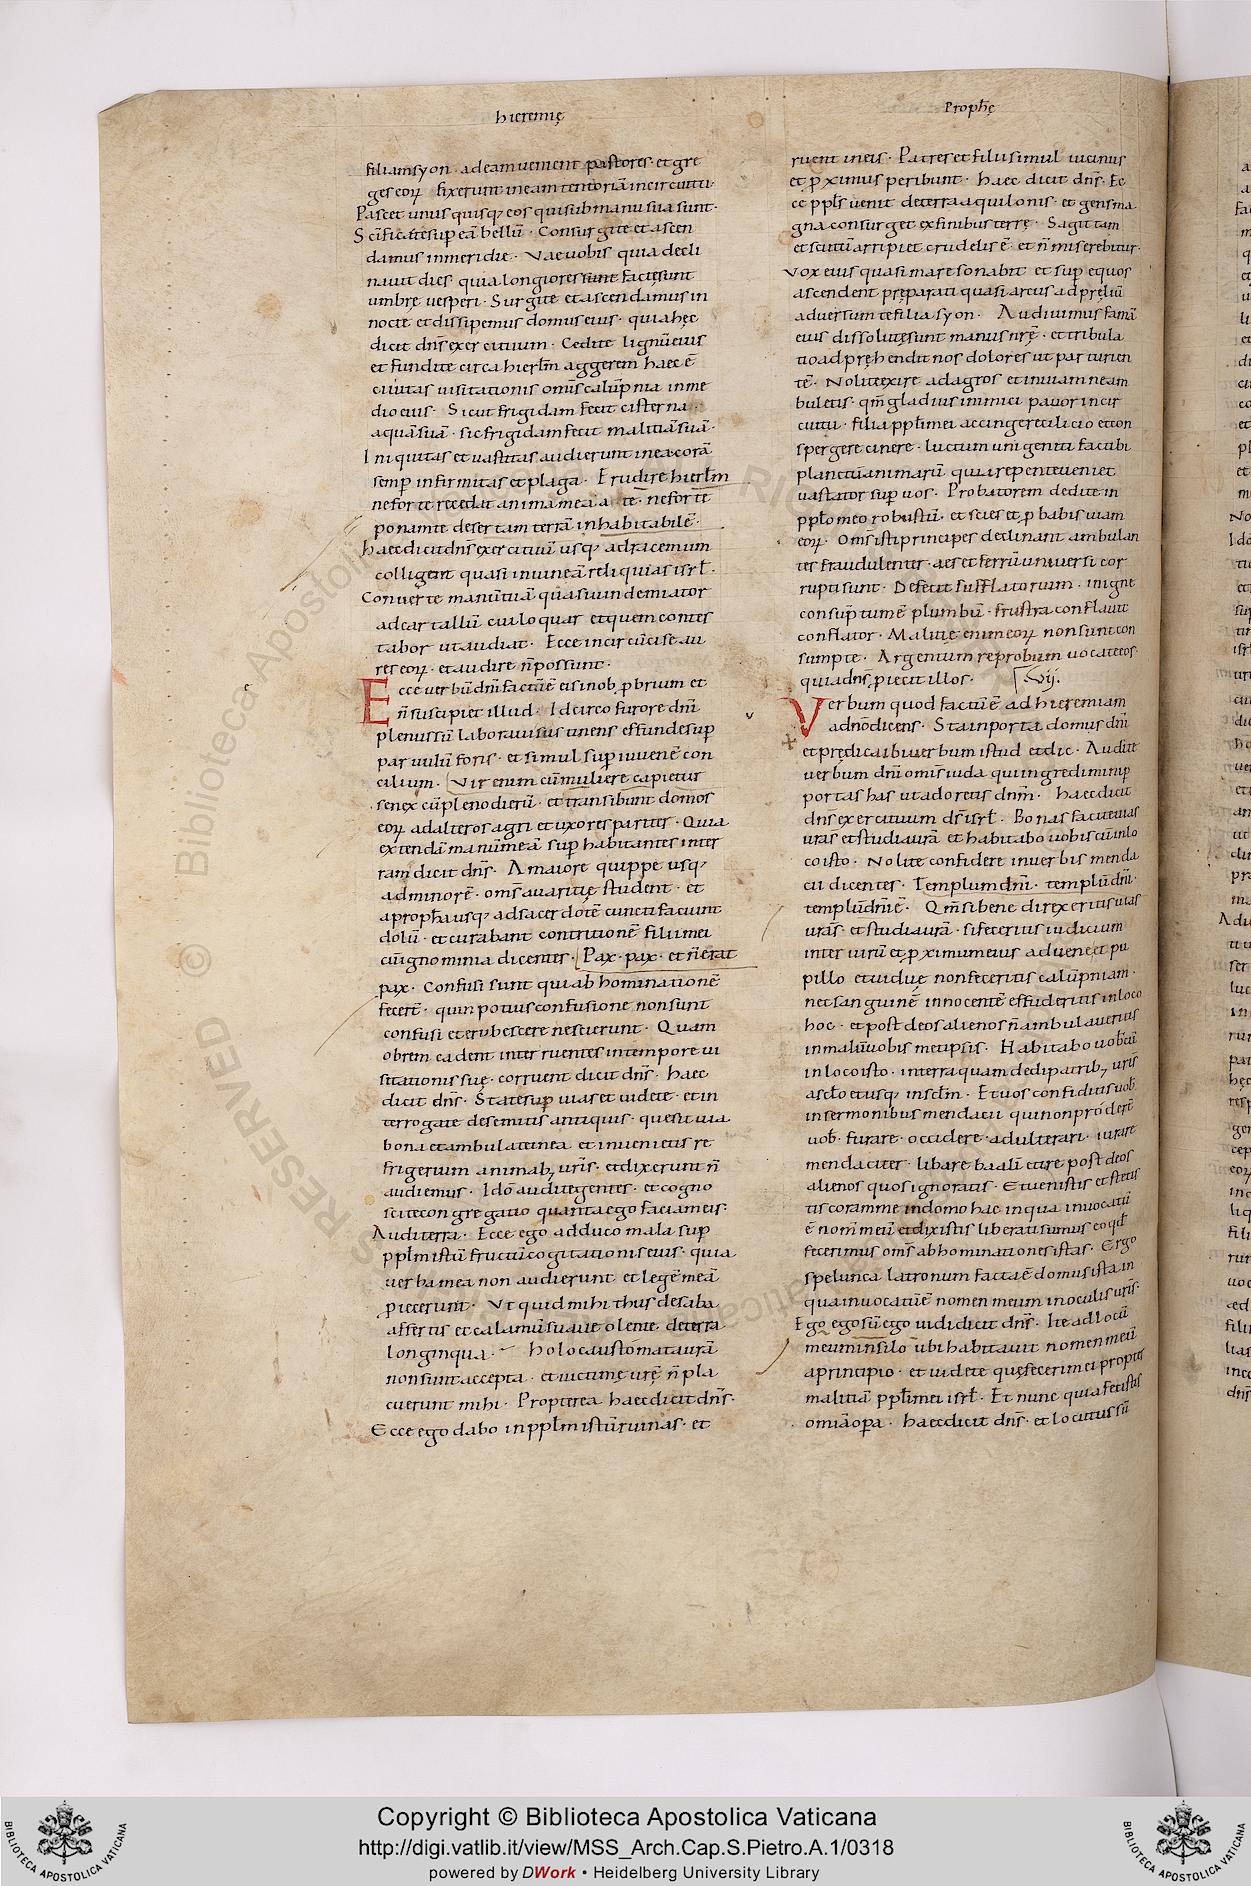 hieremię
filiam syon · ad eam venient pastores · et gre
ges eoꝝ fixerunt in ea tentoriā in circuitu ·
Pascet unus quisq; eos qui sub manu sua sunt ·
Sc̄ificate sup eā bellū · Consurgite et ascen
damus in meridie · Vae vobis quia decli
navit dies · quia longiores sunt factę sunt
umbrę vesperi · Surgite et ascendamus in
nocte et dissipemus domus eius · quia hęc
dicit dn̄s exercituum · Cedite lignū eius
et fundite circa hierlm̄ aggerem haec ē
civitas visitationis omīs calūpnia in me
dio eius · Sicut frigidam fecit cisterna
aquā suā · sic frigidam fecit malitiā suā ·
Iniquitas et vastitas audierunt in ea corā
semp infirmitas et plaga · Erudire hierlm̄
ne forte recedat anima mea a te · ne forte
ponam te desertam terrā inhabitabilē ·
haec dicit dn̄s exercituū usq; ad racemum
colligent quasi in vineā reliquias isrl̄ ·
Converte manū tuā quasi vindemiator
ad cartallū cui loquar et quem contes
tabor ut audiat · Ecce incircūcise au
res eoꝝ · et audire n̄ possunt ·
Ecce verbū dn̄i factū ē eis in obprobrium et
n̄ suscipiet illud · Idcirco furore dn̄i
plenus sū laboravi sustinens effunde sup
parvulū foris · et simul sup iuvenē con
cilium · Vir enim cū muliere capietur
senex cū pleno dierū · et transibunt domos
eoꝝ ad alteros agri et uxores pariter · Quia
extendā manū meā sup habitantes inter
ram dicit dn̄s · A maiore quippe usq;
ad minorē · omīs avaritię student · et
a proph̄a usq; ad sacerdotē cuncti faciunt
dolū · et curabant contritionē filii mei
cū ignominia dicentes · Pax · pax · et n̄ erat
pax · Confusi sunt qui abhominationē
fecerē · quin potius confusione non sunt
confusi et erubescere nescierunt · Quam
obrem cadent inter ruentes in tempore vi
sitationis suę · corruent dicit dn̄s · haec
dicit dn̄s · State sup vias et videte · et in
terrogate de semitis antiquis · quę sit via
bona et ambulate in ea et invenietis re
frigerium animab; vr̄is · et dixerunt n̄
audiemus · Ideo audite gentes · et cogno
scite congregatio quanta ego faciam eis ·
Audi terra · Ecce ego adduco mala sup
pplm istū fructū cogitationis eius · quia
verba mea non audierunt et legē meā
piecerunt · Ut quid mihi thus de saba
affertis et calamū suave olente de terra
longinqua · holocaustomata vr̄ā
non sunt accepta · et victimę vrę n̄ pla
cuerunt mihi · Propterea haec dicit dn̄s ·
Ecce ego dabo in pplm istū ruinas · et
Proph̄ę
ruent in eis · Patres et filii simul vicinus
et pximus peribunt · haec dicit dn̄s · Ec
ce ppls̄ venit de terra aquilonis · et gens ma
gna consurget ex finibus terrę · Sagittam
et scutū arripiet crudelis ē · et n̄ miserebitur ·
Vox eius quasi mare sonabit et sup equos
ascendent pręparati quasi arcus ad pręliū
adversum te filia syon · Audivimus famā
eius dissolutę sunt manus nr̄ę · et tribula
tio adpręhendit nos dolores ut parturien
tē · Nolite exire ad agros et in viam ne am
buletis · qm̄ gladius inimici pavor in cir
cuitu · filia ppl̄i mei accingere cilicio et con
spergere cinere · luctum unigeniti fac tibi
planctū animarū quia repente veniet
vastator sup vos · Probatorem dedi te in
ppl̄o meo robustū · et scies et pbabis viam
eoꝝ · Omīs isti principes declinant ambulan
tes fraudulenter · aes et ferrū universi cor
rupti sunt · Defecit sufflatorium · in igne
consūptum ē plumbū · frustra conflavit
conflator · Malitię enim eoꝝ non sunt con
sumpte · Argentum reprobum vocate eos
quia dn̄s piecit illos · vij ·
Verbum quod factū ē ad hieremiam
a dn̄o dicens · Sta in porta domus dn̄i
et prędica ibi verbum istud et dic · Audite
verbum dn̄i omīs iuda qui ingredimini p
portas has ut adoretis dnm̄ · haec dicit
dn̄s exercituum ds̄ isrl̄ · Bonas facite vias
vr̄as et studia vr̄ā et habitabo vobiscū in lo
co isto · Nolite confidere in verbis menda
cii dicentes · Templum dn̄i · templū dn̄i ·
templū dn̄i ē · Qm̄ si bene direxeritis vias
vr̄as · et studia vr̄ā · si feceritis iudicium
inter virū et pximum eius advenę et pu
pillo et viduę non feceritis calūpniam ·
nec sanguinē innocentē effuderitis in loco
hoc · et post deos alienos n̄ ambulaveritis
in malū vobis metipsis · Habitabo vobcū
in loco isto · in terra quam dedi patrib; vr̄is
a sclo et usq; in sclm · Et vos confiditis vob
in sermonibus mendacii qui non proderē
vob · furare · occidere adulterari · iurare
mendaciter · libare baalī et ire post deos
alienos quos ignoratis · Et venistis et stetis
tis coram me in domo hac in qua invocatū
ē nom̄ meū et dixistis liberati sumus eo qd
fecerimus omīs abhominationes istas · Ergo
spelunca latronum facta ē domus ista in
qua invocatū ē nomen meum in oculis vr̄is ·
Ego ego sū ego vidi dicit dn̄s · Ite ad locū
meum in silo ubi habitavit nomen meū
a principio · et videte quę fecerim ei propter
malitiā ppl̄i mei isrl̄ · Et nunc quia fecistis
omīa opa · haec dicit dn̄s · et locutus sū
Copyright © Biblioteca Apostolica Vaticana
http://digi.vatlib.it/view/MSS_Arch.Cap.S.Pietro.A.1/0318
powered by DWork • Heidelberg University Library